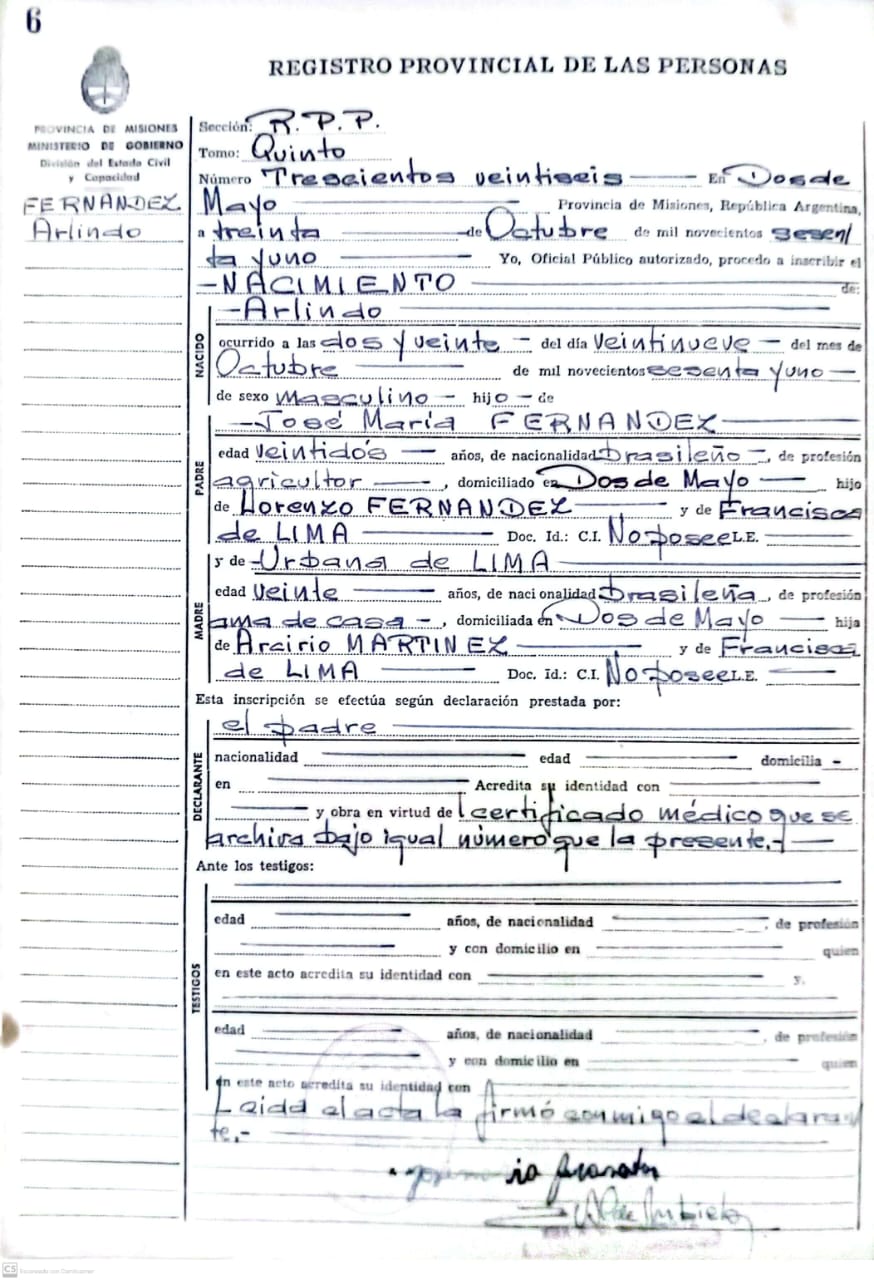 6
REGISTRO PROVINCIAL DE LAS PERSONAS
PROVINCIA DE MISIONES
MINISTERIO DE GOBIERNO
División del Estado Civil
y Capacidad
FERNANDEZ
Arlindo
Sección: R. P. P.
Tomo: Quinto
Número Trescientos veintiseis En Dos de
Mayo Provincia de Misiones, República Argentina,
a treinta de Octubre de mil novecientos sesen/
ta y uno Yo, Oficial Público autorizado, procedo a inscribir el
-NACIMIENTO de:
NACIDO
-Arlindo
ocurrido a las dos y veinte - del día veintinueve - del mes de
Octubre de mil novecientos sesenta y uno -
de sexo masculino - hijo - de
PADRE
-José María FERNANDEZ
edad veintidós años, de nacionalidad brasileño -, de profesión
agricultor, domiciliado en Dos de Mayo hijo
de Lorenzo FERNANDEZ y de Francisca
de LIMA Doc. Id.: C.I. No posee L.E.
MADRE
y de -Urbana de LIMA
edad veinte años, de nacionalidad brasileña, de profesión
ama de casa -, domiciliada en Dos de Mayo hija
de Arcirio MARTINEZ y de Francisca
de LIMA Doc. Id.: C.I. No posee L.E.
Esta inscripción se efectúa según declaración prestada por:
DECLARANTE
el padre
nacionalidad edad domicilia -
en Acredita su identidad con
y obra en virtud del certificado médico que se
archiva bajo igual número que la presente.-
Ante los testigos:
TESTIGOS
edad años, de nacionalidad, de profesión
y con domicilio en quien
en este acto acredita su identidad con y.
edad años, de nacionalidad, de profesión
y con domicilio en quien
en este acto acredita su identidad con
Leída el acta la firmó conmigo el declaran
te.-
CS Escaneado con CamScanner